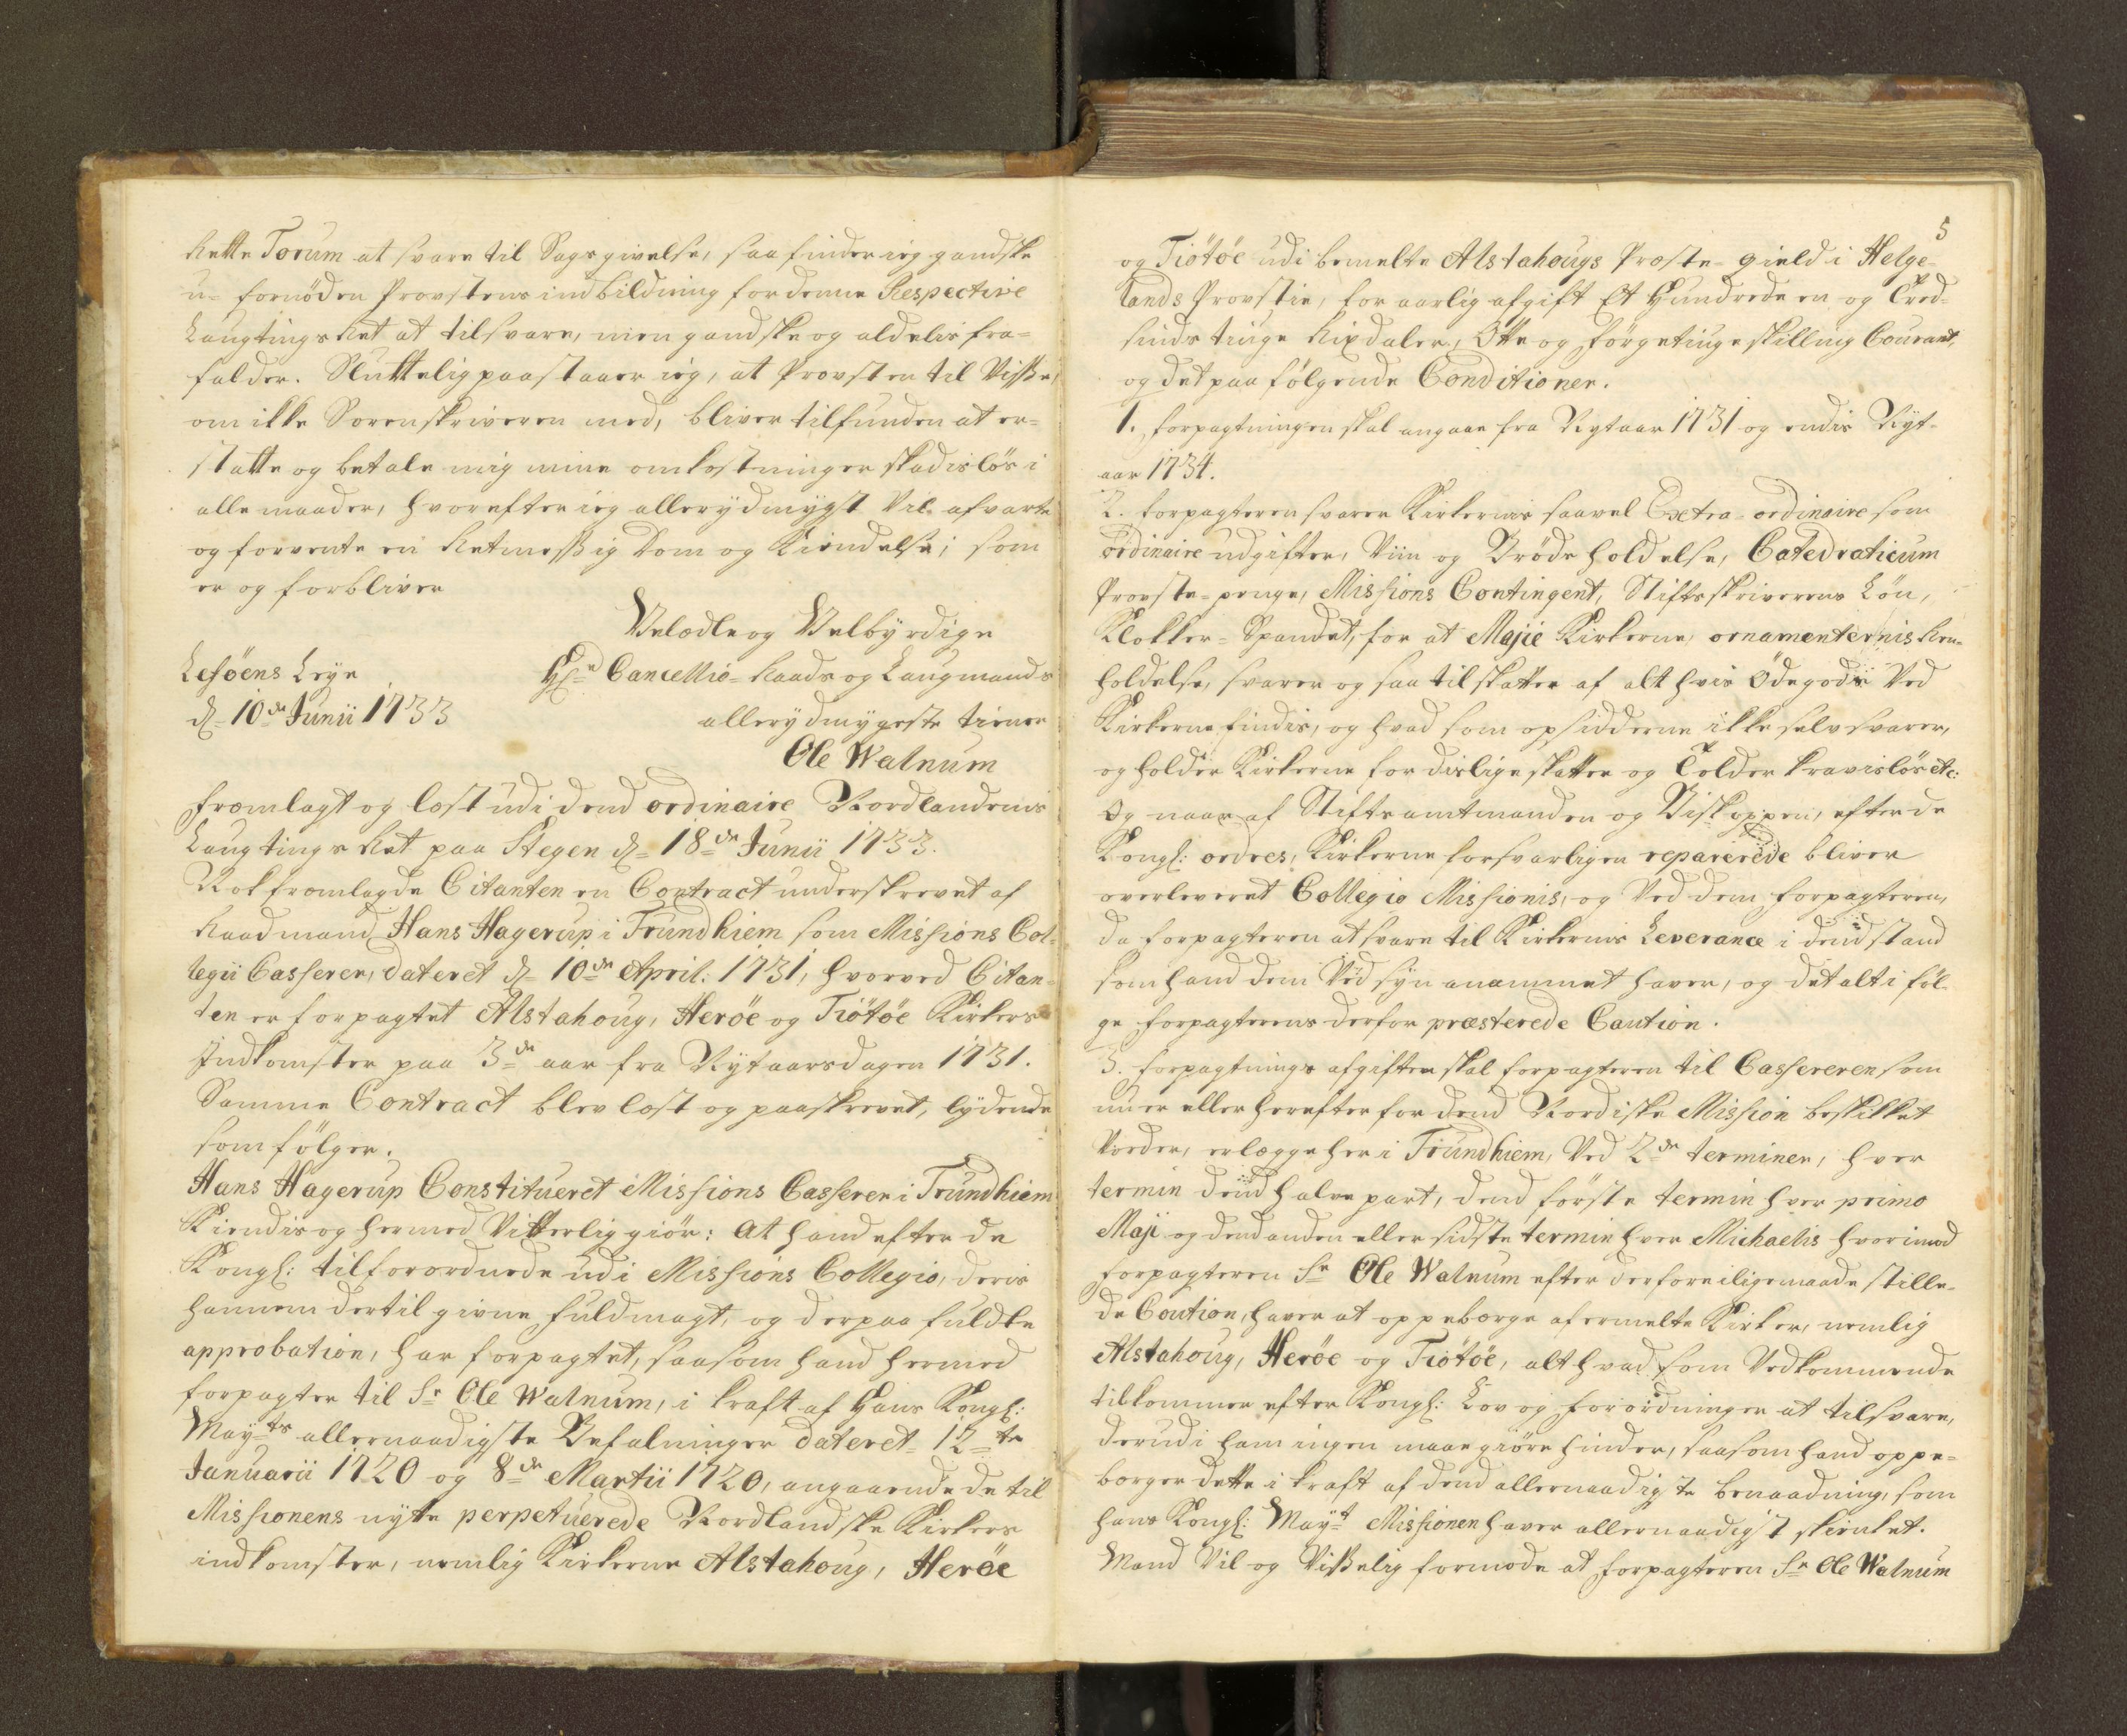 Rette Forum at svare til Sags givelse, saa finder ieg gandske
u-fornöden Provstens indbildning for denne Respective
Laugtings Ret at tilsvare, men gandske og aldelis fra-
falder. Sluttelig paastaaer ieg, at Provsten til Visse,
om ikke Sorenskriveren med, bliver tilfunden at er-
statte og betale mig mine omkostninger skadislös i
alle maader, hvorefter ieg allerydmygst Vil afvarte
og forvente en Retmessig Dom og Kiendelse; som
er og forbliver
Velædle og Velbyrdige
Lesöens Leye Hr Cancellie-Raads og Laugmands
d= 10de Junii 1733 allerydmygeste tiener
Ole Walnum
fremlagt og læst udi dend ordinaire Nordlandenis
Laugtings Ret paa Stegen d= 18de Junii 1733.
Nok fremlagde Citanten en Contract underskrevet af
Raadmand Hans Hagerup i Trundhiem som Missions Col-
legii Casserer, dateret d= 10de April: 1731, hvorved Citan-
ten er forpagtet Alstahoug, Heröe og Tiötöe Kirkers
Indkomster paa 3de aar fra Nytaarsdagen 1731.
Samme Contract blev læst og paaskrevet, lydende
som fölger.
Hans Hagerup Constitueret Missions Casserer i Trundhiem
Kiendis og hermed Vitterlig giör: at hand efter de
Kongl: tilforordnede udi Missions Collegio, deris
hannem dertil givne fuldmagt, og derpaa fuldte
approbation, har forpagtet, saasom hand hermed
forpagter til Sr Ole Walnum, i kraft af Hans Kongl:
Mayts allernaadigste Befalninger dateret 12te
Januarii 1720 og 8de Martii 1720, angaaende de til
Missionens nytte perpetuerede Nordlandske Kirkers
indkomster, nemlig Kirkerne Alstahoug, Heröe
5
og Tiötöe udi bemelte Alstahougs Præste-gield i Helge-
lands Provstie, for aarlig afgift Et Hundrede en og Tred-
sinds tiuge Rixdaler, Otte og förgetiuge skilling Courant,
og det paa fölgende Conditioner.
1. forpagtningen skal angaae fra Nytaar 1731 og endis Nyt-
aar 1734.
2. forpagteren svarer Kirkernis saavel Extra-ordinaire som
ordinaire udgifter, Viin og Bröds holdelse, Catedraticum
Provste-penge, Missions Contingent, Stiftsskriverens Lön,
Klokker-Spandet, for at Majie Kirkerne, ornamenternis Reen-
holdelse, svarer og saa til skatter af alt hvis Ödegods Ved
Kirkerne findis, og hvad som opsidderne ikke selv svarer,
og holder Kirkerne for dislige skatter og Tolder kravislös etc:
Og naar af Stiftsamtmanden og Biskoppen, efter de
Kongl: ordres, Kirkerne forsvarligen reparerede bliver
overleveret Collegio Missionis, og Ved dem forpagteren,
da forpagteren at svare til Kirkernis Leverance i dend stand
som hand dem Ved syn anammet haver, og det alt i föl-
ge forpagterens derfor præsterede Caution.
3. forpagtnings afgiften skal forpagteren til Cassereren som
nu er eller herefter for dend Nordiske Mission beskikket
Vorder, erlægge her i Trundhiem, Ved 2de terminer, hver
termin dend halve part, dend förste termin hver primo
Maji og dend anden eller sidste termin hver Michaelis hvorimod
forpagteren Sr Ole Walnum efter derfore lige maade stille-
de Caution, haver at oppebærge af ermelte Kirker, nemlig
Alstahoug, Heröe og Tiötöe, alt hvad som Vedkommende
tilkommer efter Kongl: Lov og forordninger at tilsvare,
derudi ham ingen maae giöre hinder, saasom hand oppe-
bærger dette i kraft af dend allernaadigste benaadning, som
hans Kongl: Mayt Missionen haver allernaadigst skienket.
Mand Vil og Visselig formode at forpagteren Sr Ole Walnum